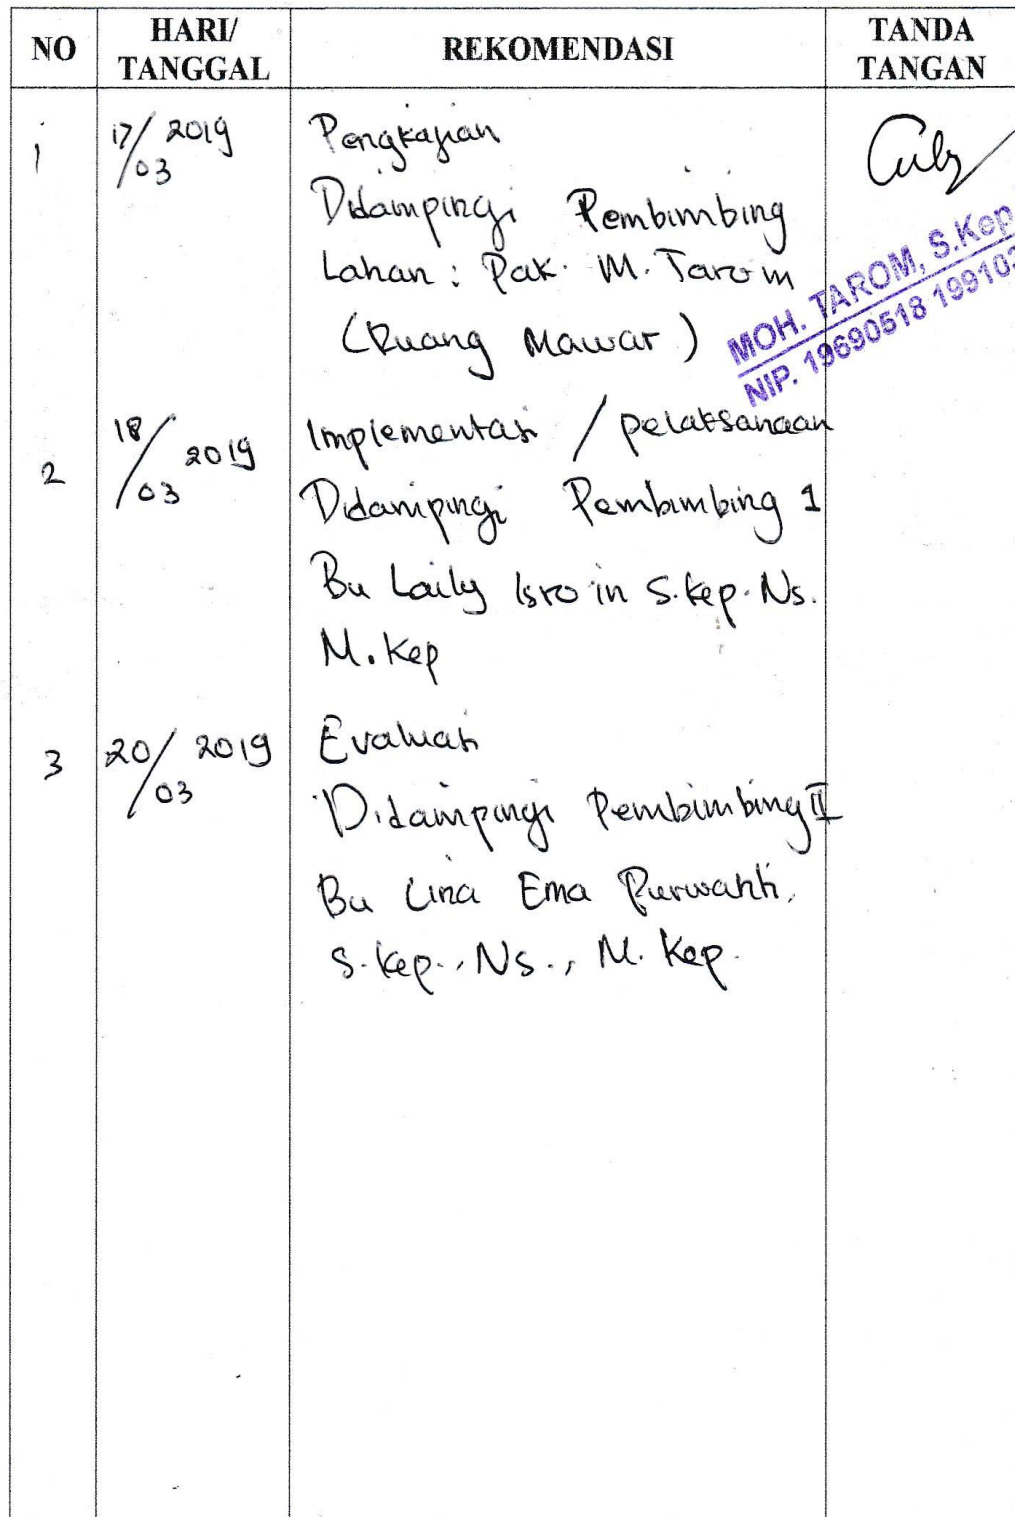 NO HARI/ TANGGAL REKOMENDASI TANDA TANGAN
1 17/03 2019 Pengkajian
Didampingi Pembimbing
Lahan : Pak. M. Tarom
(Ruang Mawar)
MOH. TAROM, S.Kep
NIP. 19690518 199103
2 18/03 2019 Implementasi / pelaksanaan
Didampingi Pembimbing 1
Bu Laily Isro'in S.Kep.Ns.
M.Kep
3 20/03 2019 Evaluasi
Didampingi Pembimbing II
Bu Lina Ema Purwanti,
S.Kep., Ns., M.Kep.